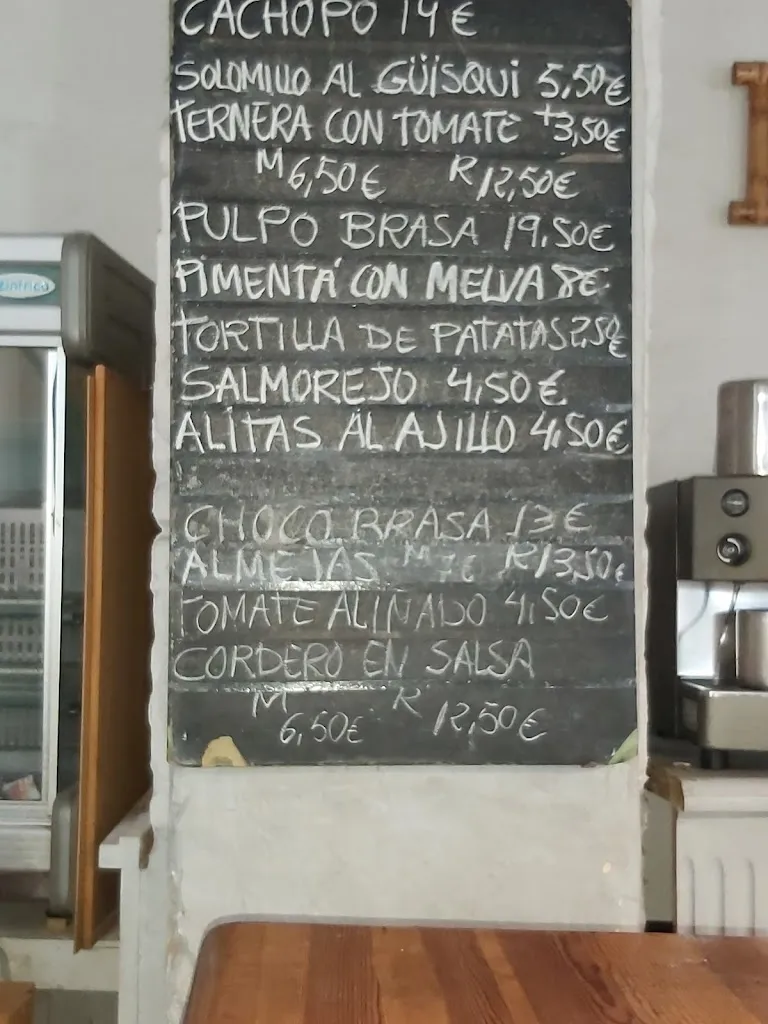 CACHOPO 14€
SOLOMILLO AL GÜISQUI 5,50€
TERNERA CON TOMATE +3,50€
M 6,50€ R 12,50€
PULPO BRASA 19,50€
PIMENTÁ CON MELVA 8€
TORTILLA DE PATATAS 2,50€
SALMOREJO 4,50€
ALITAS AL AJILLO 4,50€
CHOCO BRASA 13€
ALMEJAS M 7€ R 13,50€
TOMATE ALINADO 4,50€
CORDERO EN SALSA
M 6,50€ R 12,50€